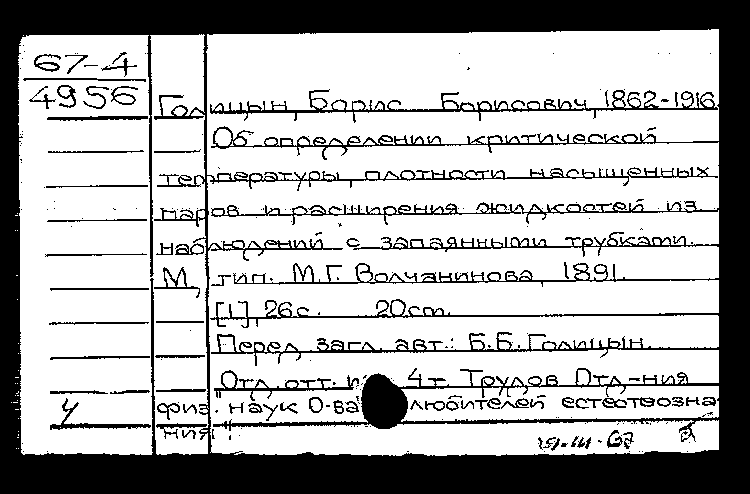 67-4
4956
Голицын, Борис Борисович, 1862-1916.
Об определении критической
температуры, плотности насыщенных
паров и расширения жидкостей из
наблюдений с запаянными трубками.
М., тип. М.Г. Волчанинова, 1891.
[1], 26 с. 20 cm.
Перед загл. авт.: Б.Б. Голицын.
Отд. отт. из 4 т. Трудов Отд-ния
физ. наук О-ва любителей естествозна-
ния".